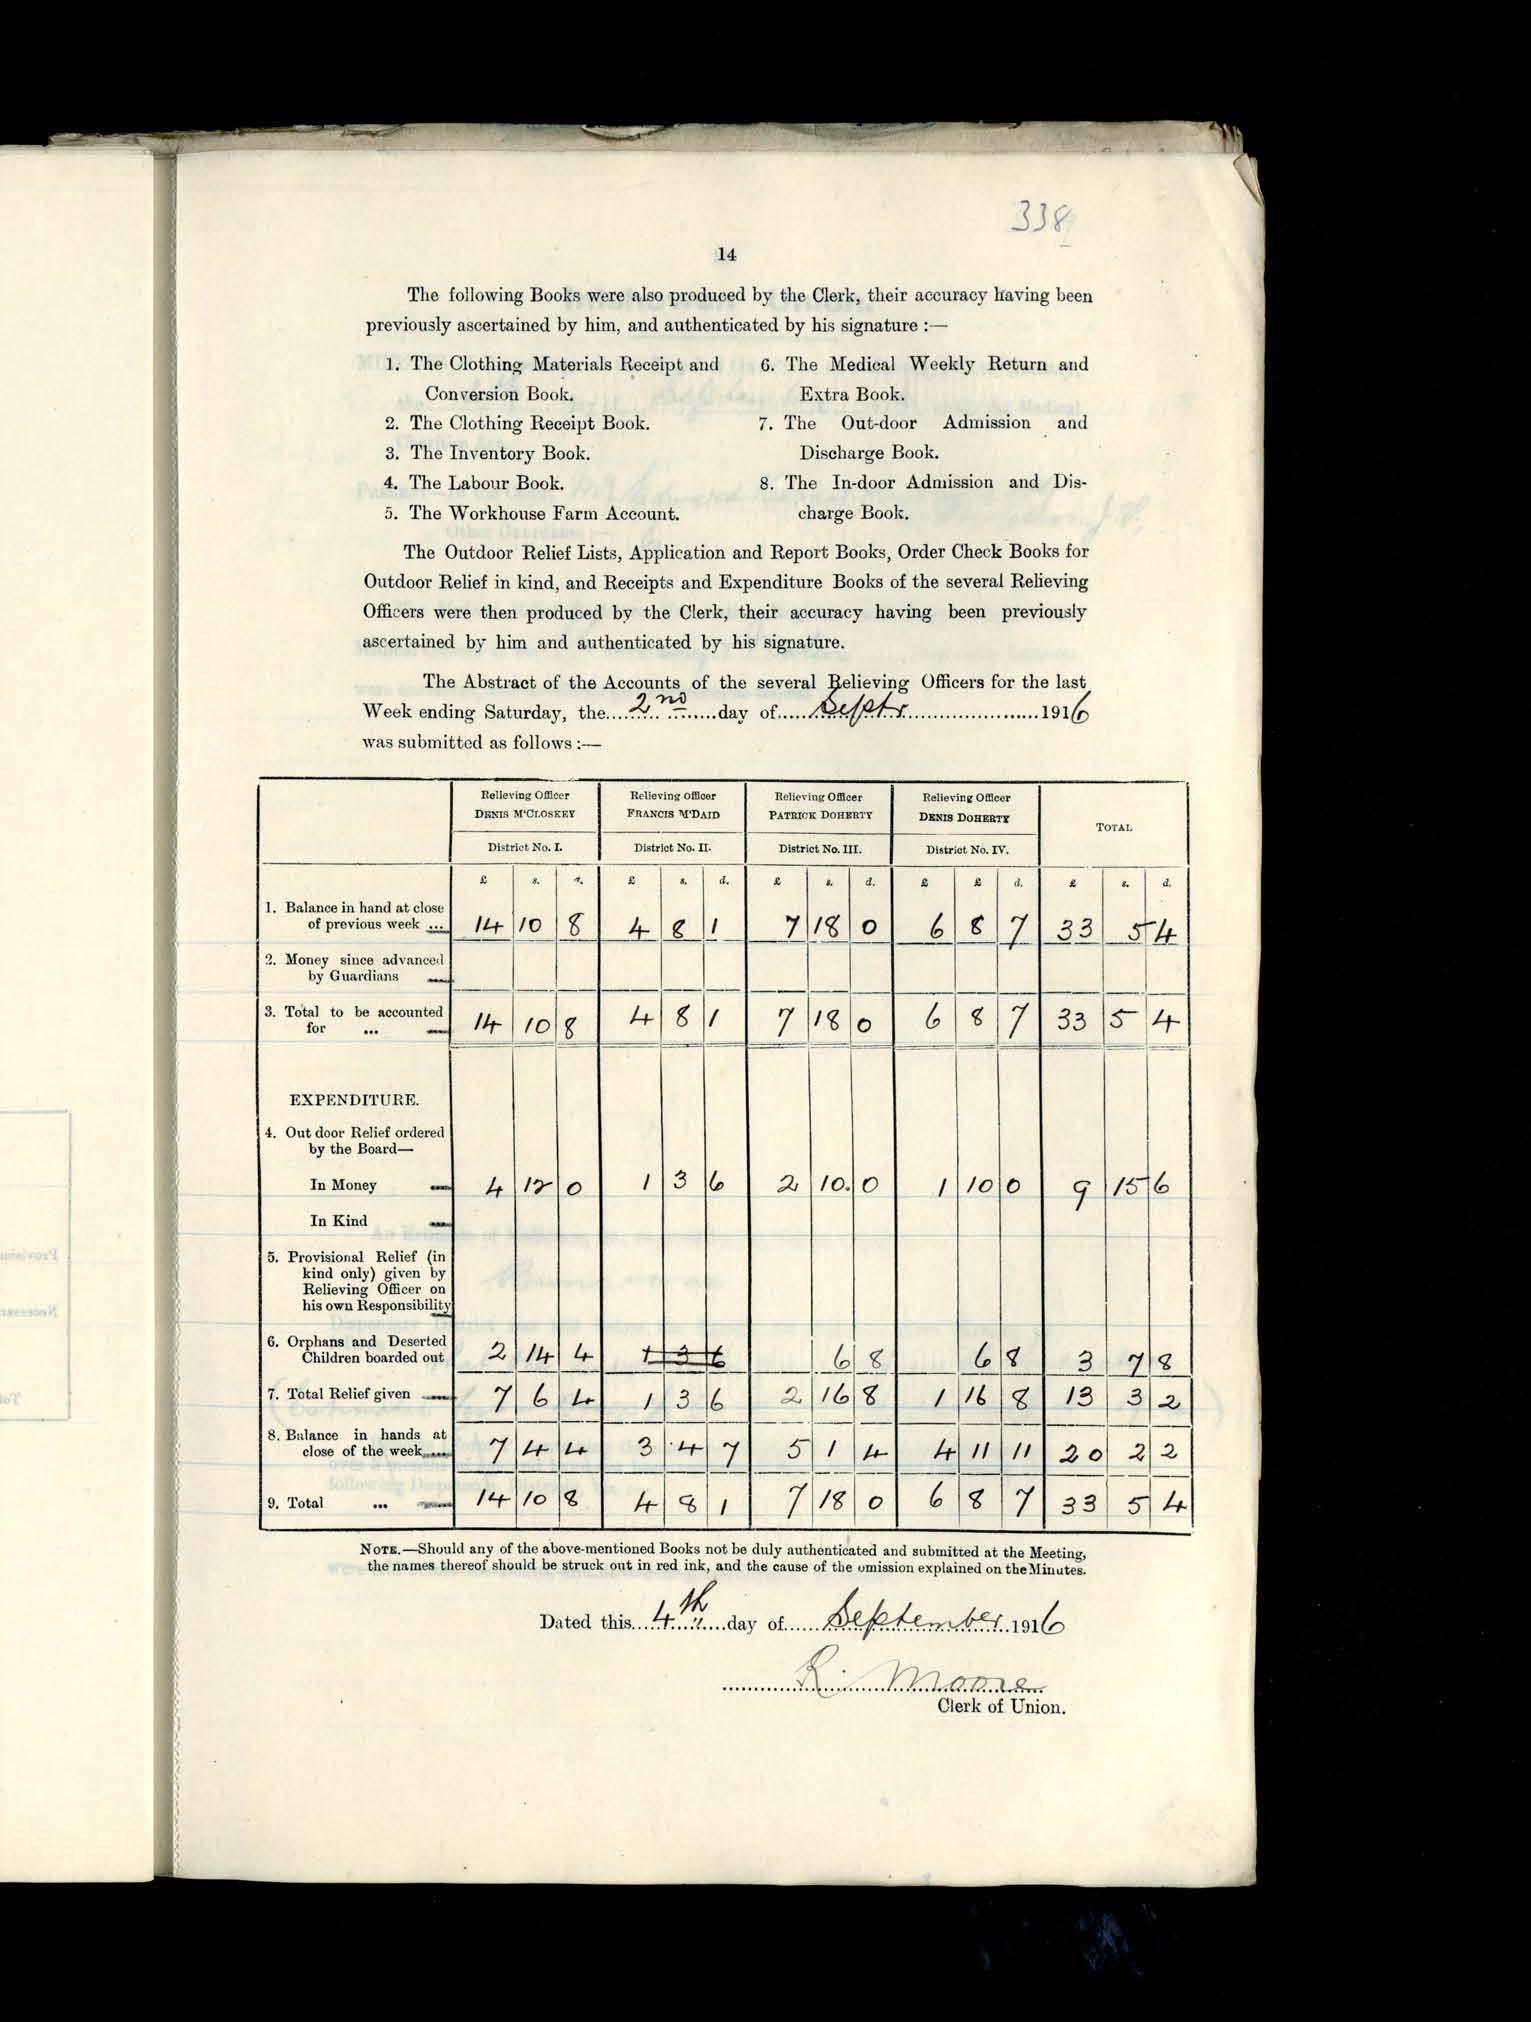 338
14
The following Books were also produced by the Clerk, their accuracy having been
previously ascertained by him, and authenticated by his signature :—
1. The Clothing Materials Receipt and
Conversion Book.
2. The Clothing Receipt Book.
3. The Inventory Book.
4. The Labour Book.
5. The Workhouse Farm Account.
6. The Medical Weekly Return and
Extra Book.
7. The Out-door Admission and
Discharge Book.
8. The In-door Admission and Dis-
charge Book.
The Outdoor Relief Lists, Application and Report Books, Order Check Books for
Outdoor Relief in kind, and Receipts and Expenditure Books of the several Relieving
Officers were then produced by the Clerk, their accuracy having been previously
ascertained by him and authenticated by his signature.
The Abstract of the Accounts of the several Relieving Officers for the last
Week ending Saturday, the 2nd day of Septr 1916
was submitted as follows :—
Relieving Officer Relieving Officer Relieving Officer Relieving Officer
DENIS M'CLOSKEY FRANCIS M'DAID PATRICK DOHERTY DENIS DOHERTY TOTAL
District No. I. District No. II. District No. III. District No. IV.
£ s. d. £ s. d. £ s. d. £ £ d. £ s. d.
1. Balance in hand at close
of previous week ... 14 10 8 4 8 1 7 18 0 6 8 7 33 5 4
2. Money since advanced
by Guardians
3. Total to be accounted
for ... 14 10 8 4 8 1 7 18 0 6 8 7 33 5 4
EXPENDITURE.
4. Out door Relief ordered
by the Board—
In Money 4 12 0 1 3 6 2 10. 0 1 10 0 9 15 6
In Kind
5. Provisional Relief (in
kind only) given by
Relieving Officer on
his own Responsibility
6. Orphans and Deserted
Children boarded out 2 14 4 1 3 6 6 8 6 8 3 7 8
7. Total Relief given 7 6 4 1 3 6 2 16 8 1 16 8 13 3 2
8. Balance in hands at
close of the week 7 4 4 3 4 7 5 1 4 4 11 11 20 2 2
9. Total ... 14 10 8 4 8 1 7 18 0 6 8 7 33 5 4
NOTE.—Should any of the above-mentioned Books not be duly authenticated and submitted at the Meeting,
the names thereof should be struck out in red ink, and the cause of the omission explained on the Minutes.
Dated this 4th day of September 1916
R. Moore
Clerk of Union.